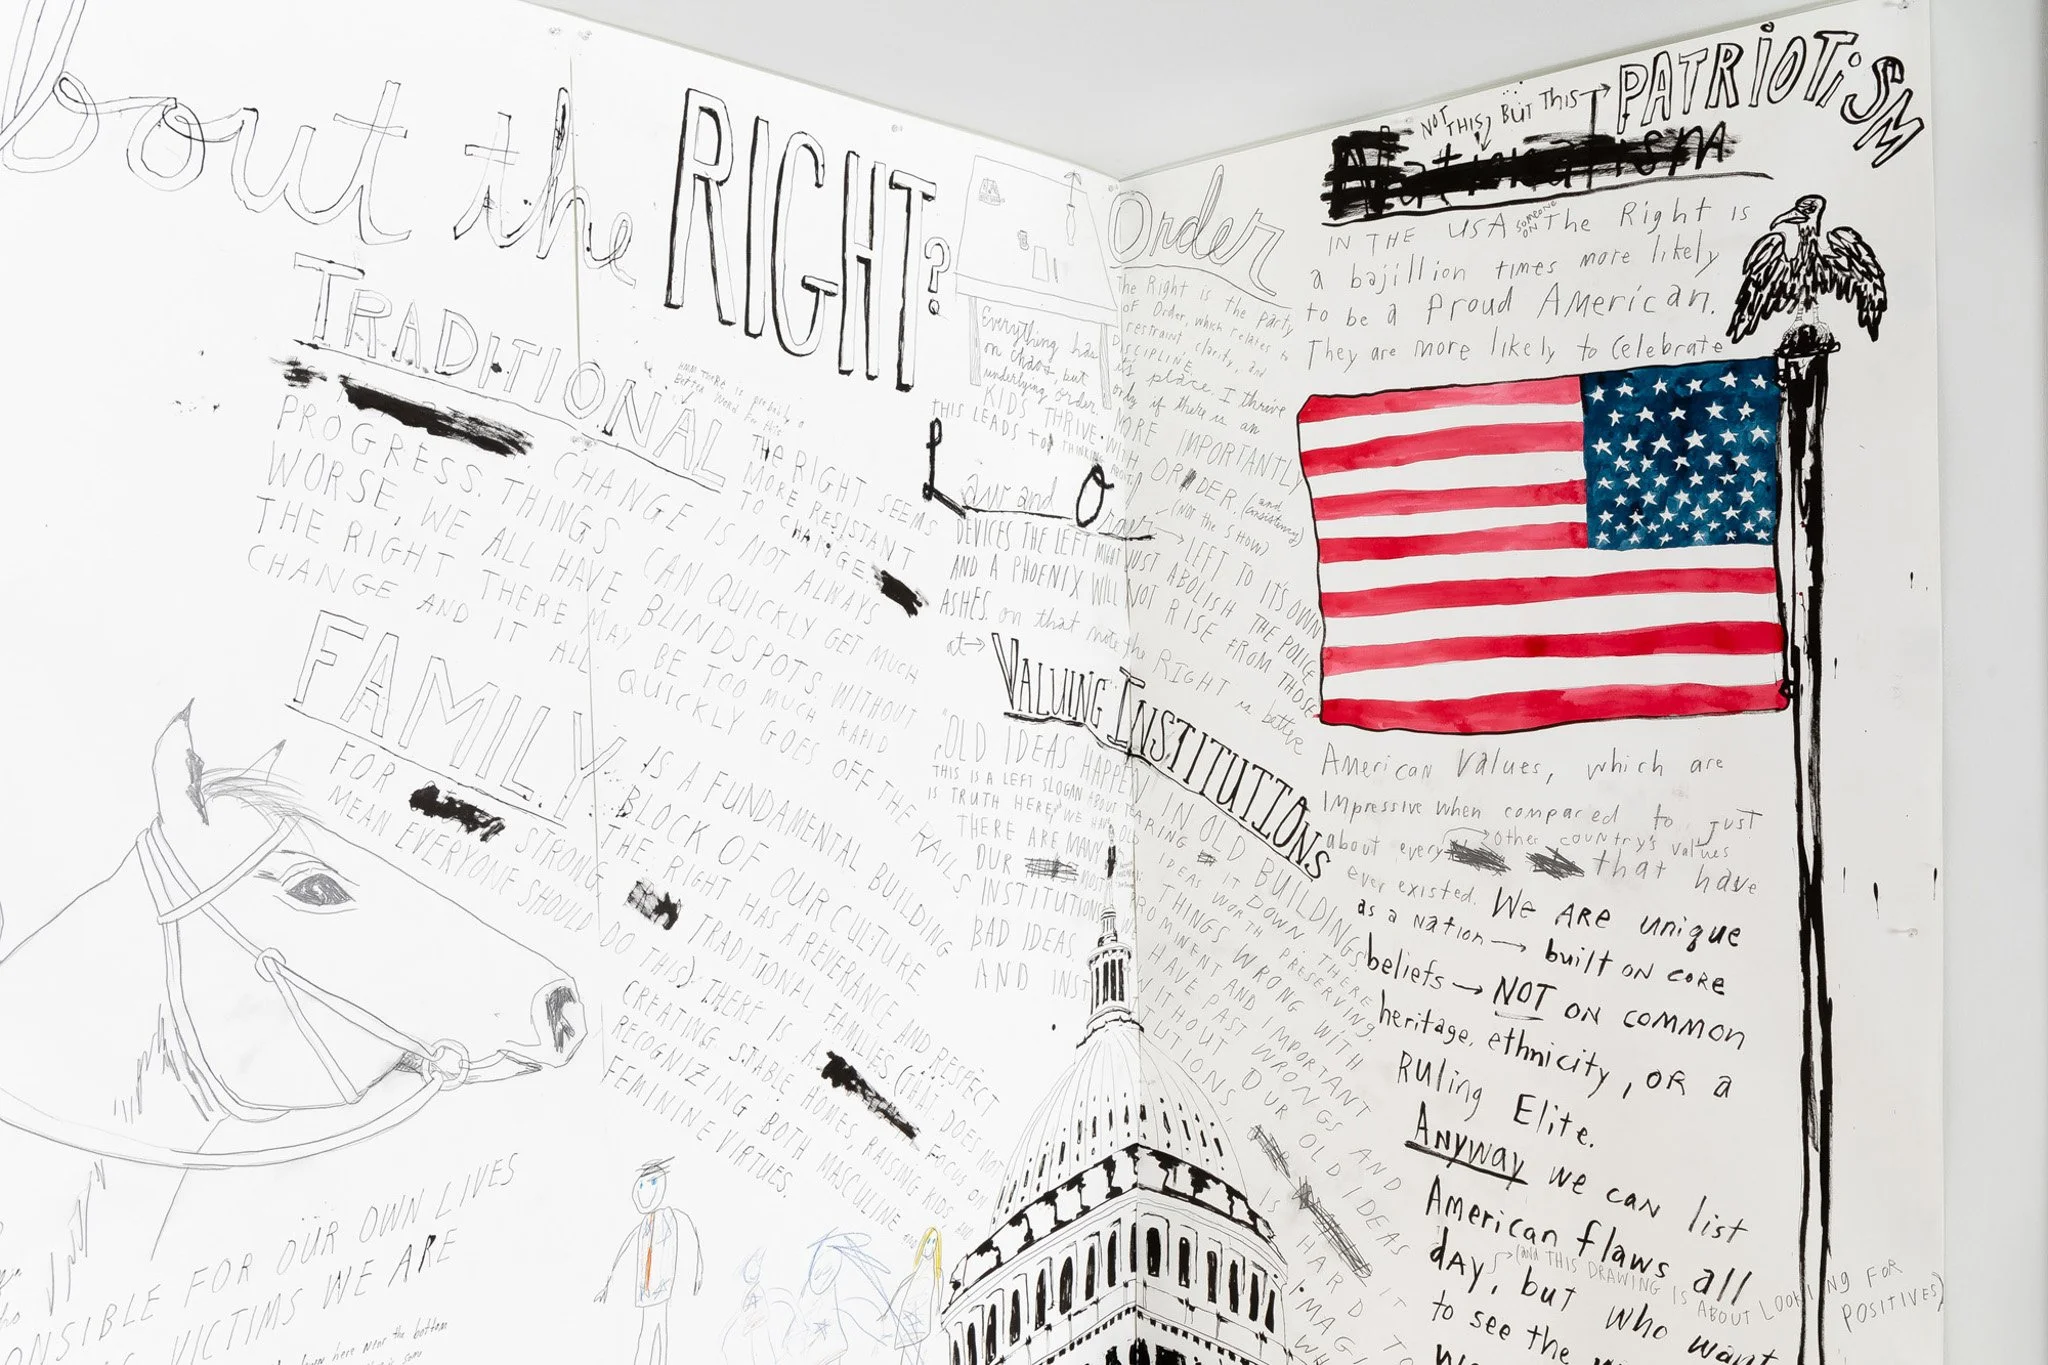 bout the RIGHT?
TRADITIONAL
HMM THERE IS probably a
Better Word For this
THE RIGHT SEEMS
MORE RESISTANT
TO CHANGE.
CHANGE IS NOT ALWAYS
PROGRESS. THINGS CAN QUICKLY GET MUCH
WORSE. WE ALL HAVE BLINDSPOTS. WITHOUT
THE RIGHT THERE MAY BE TOO MUCH RAPID
CHANGE AND IT ALL QUICKLY GOES OFF THE RAILS.
FAMILY
IS A FUNDAMENTAL BUILDING
BLOCK OF OUR CULTURE.
THE RIGHT HAS A REVERANCE AND RESPECT
FOR STRONG, TRADITIONAL FAMILIES (THAT DOES NOT
MEAN EVERYONE SHOULD DO THIS). THERE IS A FOCUS ON
CREATING STABLE HOMES, RAISING KIDS, AND
RECOGNIZING BOTH MASCULINE AND
FEMININE VIRTUES.
ONSIBLE FOR OUR OWN LIVES
VICTIMS WE ARE
down here near the bottom
Order
The Right is the party
of Order, which relates to
restraint, clarity, and
DISCIPLINE.
Everything has it's place. I thrive
on chaos, but only if there is an
underlying order. MORE IMPORTANTLY
KIDS THRIVE WITH ORDER. (and consistency)
THIS LEADS TO THINKING ABOUT
Law and Order (NOT THE SHOW)
LEFT TO IT'S OWN
DEVICES THE LEFT MIGHT JUST ABOLISH THE POLICE
AND A PHOENIX WILL NOT RISE FROM THOSE
ASHES. on that note the RIGHT is better
at→ VALUING INSTITUTIONS
"OLD IDEAS HAPPEN IN OLD BUILDINGS."
THIS IS A LEFT SLOGAN ABOUT TEARING IT DOWN. THERE
IS TRUTH HERE, WE HAVE OLD IDEAS WORTH PRESERVING.
THERE ARE MANY THINGS WRONG WITH
OUR MOST PROMINENT AND IMPORTANT
INSTITUTIONS. WE HAVE PAST WRONGS AND
BAD IDEAS. WITHOUT OUR OLD IDEAS
AND INSTITUTIONS, IT
IS HARD TO
IMAGI
NOT THIS, BUT THIS→ PATRIOTISM
Nationalism
IN THE USA SOMEONE ON The Right is
a bajillion times more likely
to be a Proud American.
They are more likely to celebrate
American Values, which are
impressive when compared to just
about every other country's values
that have
ever existed. We ARE unique
as a NATION → built ON CORE
beliefs → NOT ON COMMON
heritage, ethnicity, OR a
Ruling Elite.
Anyway we can list
American flaws all
day, (and THIS DRAWING IS ABOUT LOOKING FOR POSITIVES)
but who want
to see the